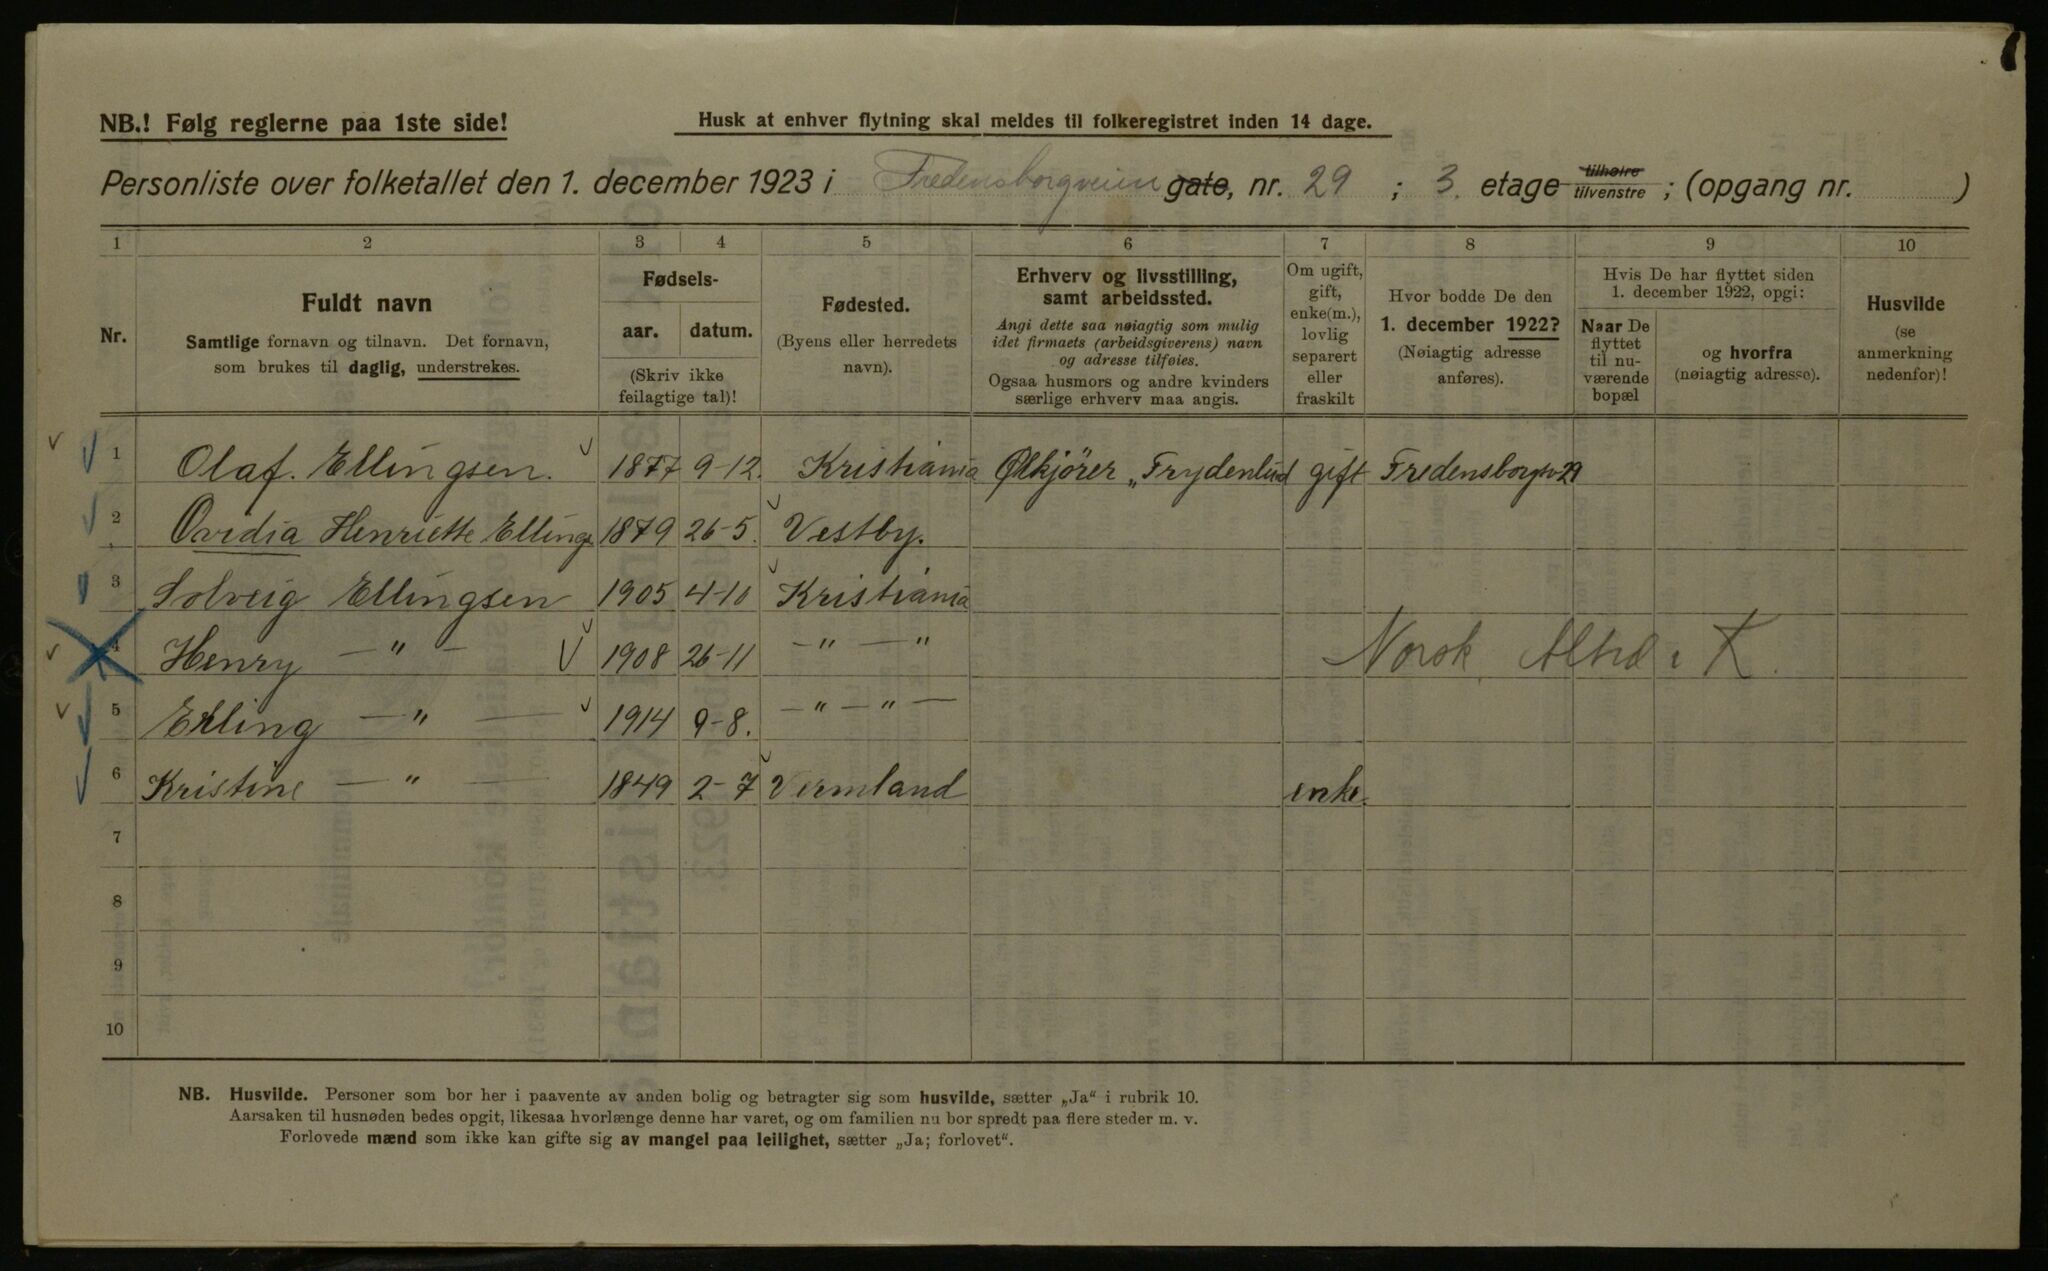 NB.! Følg reglerne paa 1ste side!
Husk at enhver flytning skal meldes til folkeregistret inden 14 dage.
Personliste over folketallet den 1. december 1923 i Fredensborgveien gate, nr. 29 ; 3. etage tilhøire tilvenstre ; (opgang nr. )
1 2 3 4 5 6 7 8 9 10
Nr.
Fuldt navn
Samtlige fornavn og tilnavn. Det fornavn,
som brukes til daglig, understrekes.
Fødsels-
aar. datum.
(Skriv ikke
feilagtige tal)!
Fødested.
(Byens eller herredets
navn).
Erhverv og livsstilling,
samt arbeidssted.
Angi dette saa nøiagtig som mulig
idet firmaets (arbeidsgiverens) navn
og adresse tilføies.
Ogsaa husmors og andre kvinders
særlige erhverv maa angis.
Om ugift,
gift,
enke(m.),
lovlig
separert
eller
fraskilt
Hvor bodde De den
1. december 1922?
(Nøiagtig adresse
anføres).
Hvis De har flyttet siden
1. december 1922, opgi:
Naar De
flyttet
til nu-
værende
bopæl
og hvorfra
(nøiagtig adresse).
Husvilde
(se
anmerkning
nedenfor)!
1 Olaf. Ellingsen. 1877 9-12. Kristiania Ølkjører „Frydenlund gift Fredensborgv 29
2 Ovidia Henriette Ellings 1879 26-5. Vestby.
3 Solveig Ellingsen 1905 4-10 Kristiania
4 Henry — " — 1908 26-11 — " — " Norsk i K.
5 Erling — " — 1914 9-8. — " — " —
6 Kristine — " — 1849 2-7 Vermland enke.
7
8
9
10
NB. Husvilde. Personer som bor her i paavente av anden bolig og betragter sig som husvilde, sætter „Ja" i rubrik 10.
Aarsaken til husnøden bedes opgit, likesaa hvorlænge denne har varet, og om familien nu bor spredt paa flere steder m. v.
Forlovede mænd som ikke kan gifte sig av mangel paa leilighet, sætter „Ja; forlovet".